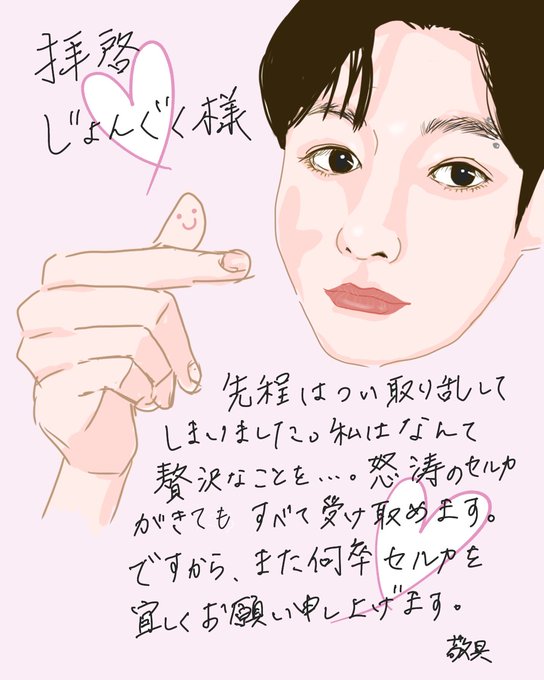 拝啓
じょんぐく様
先程はつい取り乱して
しまいました。私はなんて
贅沢なことを…。怒涛のセルカ
がきても すべて受け取めます。
ですから、また何卒セルカを
宜しくお願い申し上げます。
敬具